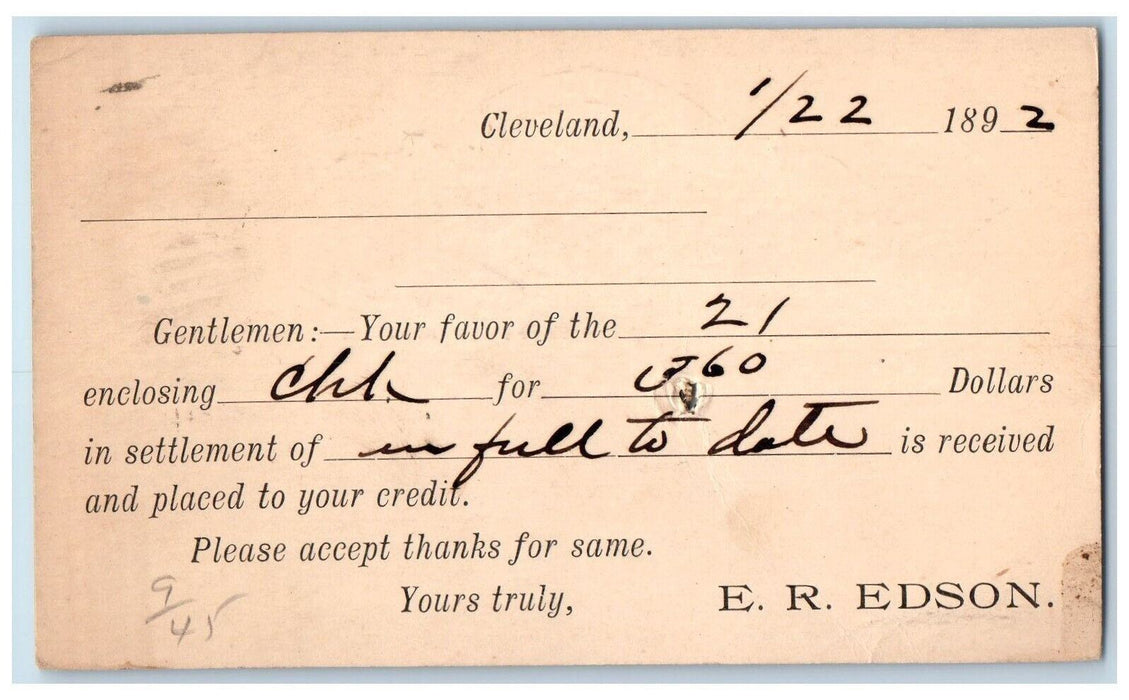 Cleveland, 1/22 1892
Gentlemen:—Your favor of the 21
enclosing chk for 60 Dollars
in settlement of in full to date is received
and placed to your credit.
Please accept thanks for same.
Yours truly, E. R. EDSON.
9/45